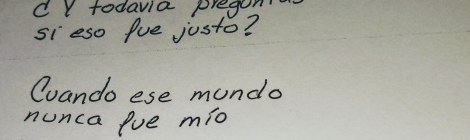 ¿Y todavía preguntas
si eso fue justo?
Cuando ese mundo
nunca fue mío